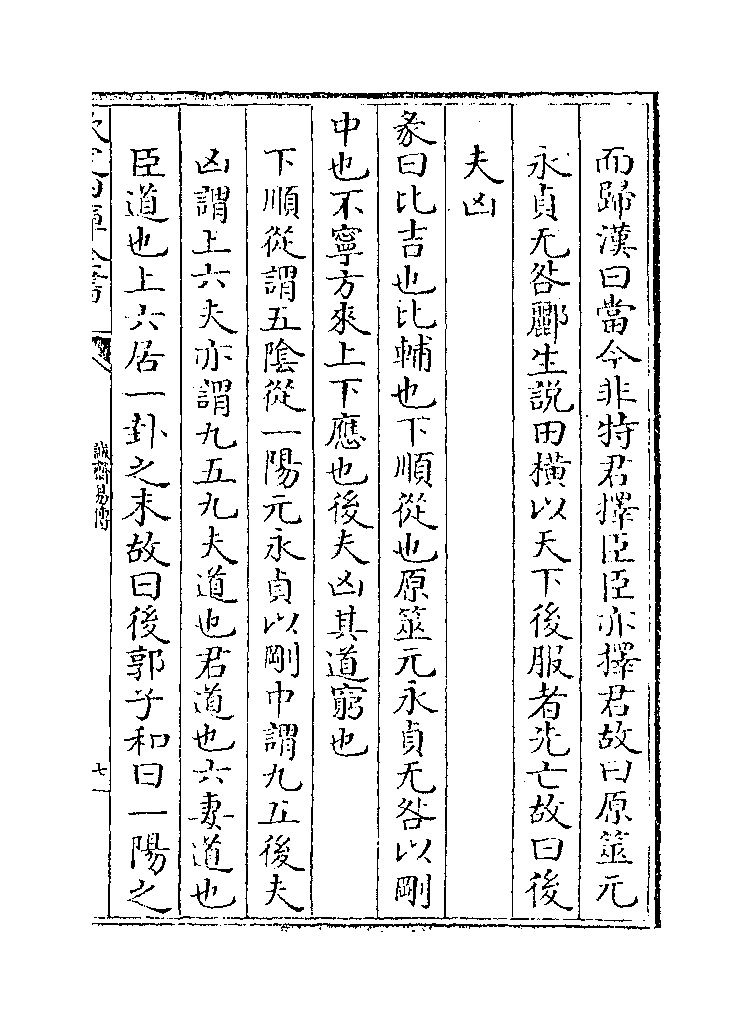 而歸漢曰當今非特君擇臣臣亦擇君故曰原筮元
永貞无咎酈生説田横以天下後服者先亡故曰後
夫凶
彖曰比吉也比輔也下順從也原筮元永貞无咎以剛
中也不寧方來上下應也後夫凶其道窮也
下順從謂五陰從一陽元永貞以剛中謂九五後夫
凶謂上六夫亦謂九五九夫道也君道也六妻道也
臣道也上六居一卦之末故曰後郭子和曰一陽之
誠齋易傳